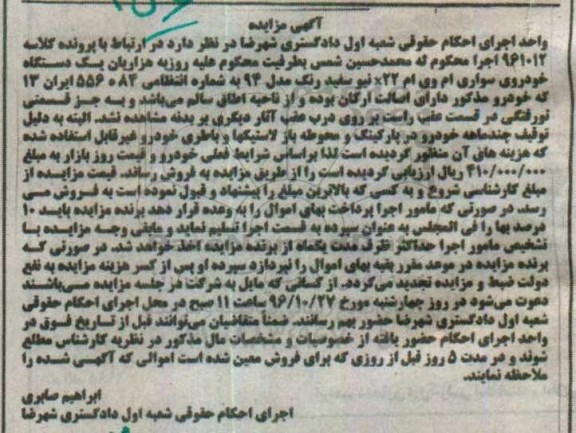 آگهی مزایده
واحد اجرای احکام حقوقی شعبه اول دادگستری شهرضا در نظر دارد در ارتباط با پرونده کلاسه
۹۶۱۰۱۲ اجرا محکوم له محمدحسین شمس بطرفیت محکوم علیه روزبه هزاریان یک دستگاه
خودروی سواری ام وی ام ۲۲x نیو سفید رنگ مدل ۹۴ به شماره انتظامی ۸۴ ه ۵۵۶ ایران ۱۳
که خودرو مذکور دارای اصالت ارکان بوده و از ناحیه اطاق سالم می‌باشد و به جز قسمتی
تورفتگی در قسمت عقب راست بر روی درب عقب آثار دیگری بر بدنه مشاهده نشد. البته به دلیل
توقیف چندماهه خودرو در پارکینگ و محوطه باز لاستیکها و باطری خودرو غیرقابل استفاده شده
که هزینه های آن منظور گردیده است لذا براساس شرایط فعلی خودرو و قیمت روز بازار به مبلغ
۴۱۰/۰۰۰/۰۰۰ ریال ارزیابی گردیده است را از طریق مزایده به فروش رساند. قیمت مزایده از
مبلغ کارشناسی شروع و به کسی که بالاترین مبلغ را پیشنهاد و قبول نموده است به فروش می
رسد. در صورتی که مامور اجرا پرداخت بهای اموال را به وعده قرار دهد برنده مزایده باید ۱۰
درصد بها را فی المجلس به عنوان سپرده به قسمت اجرا تسلیم نماید و مابقی وجه مزایده با
تشخیص مامور اجرا حداکثر ظرف مدت یکماه از برنده مزایده اخذ خواهد شد. در صورتی که
برنده مزایده در موعد مقرر بقیه بهای اموال را نپردازد سپرده او پس از کسر هزینه مزایده به نفع
دولت ضبط و مزایده تجدید می‌گردد. از کسانی که مایل به شرکت در جلسه مزایده می‌باشند
دعوت می‌شود در روز چهارشنبه مورخ ۹۶/۱۰/۲۷ ساعت ۱۱ صبح در محل اجرای احکام حقوقی
شعبه اول دادگستری شهرضا حضور بهم رسانند. ضمناً متقاضیان می‌توانند قبل از تاریخ فوق در
واحد اجرای احکام حضور یافته از خصوصیات و مشخصات مال مذکور در نظریه کارشناس مطلع
شوند و در مدت ۵ روز قبل از روزی که برای فروش معین شده است اموالی که آگهی شده را
ملاحظه نمایند.
ابراهیم صابری
اجرای احکام حقوقی شعبه اول دادگستری شهرضا